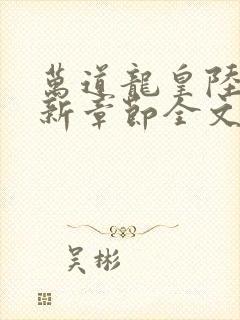 萬道龍皇陸
新章節全文
吴彬